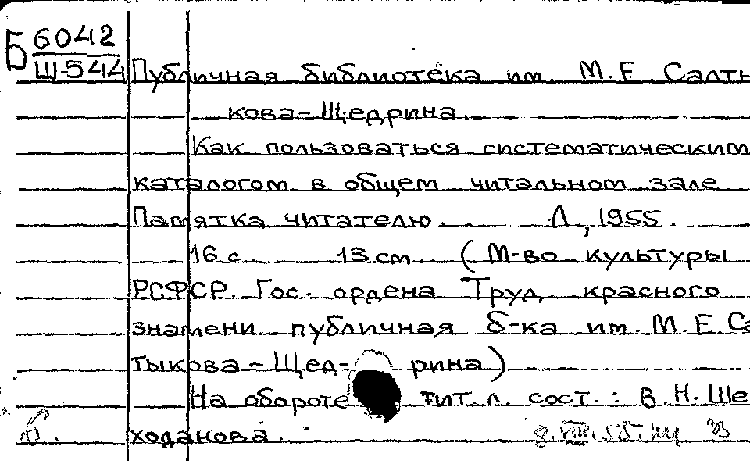 Б 6042
Щ-544
Публичная библиотека им. М.Е Салты
кова-Щедрина
Как пользоваться систематическим
каталогом в общем читальном зале
Памятка читателю. Л, 1955.
16 с. 13 см. (М-во культуры
РСФСР. Гос. ордена Труд. красного
знамени публичная б-ка им. М.Е Са
тыкова-Щед-рина)
На обороте тит. л. сост.: В.Н. Ше
ходанова.